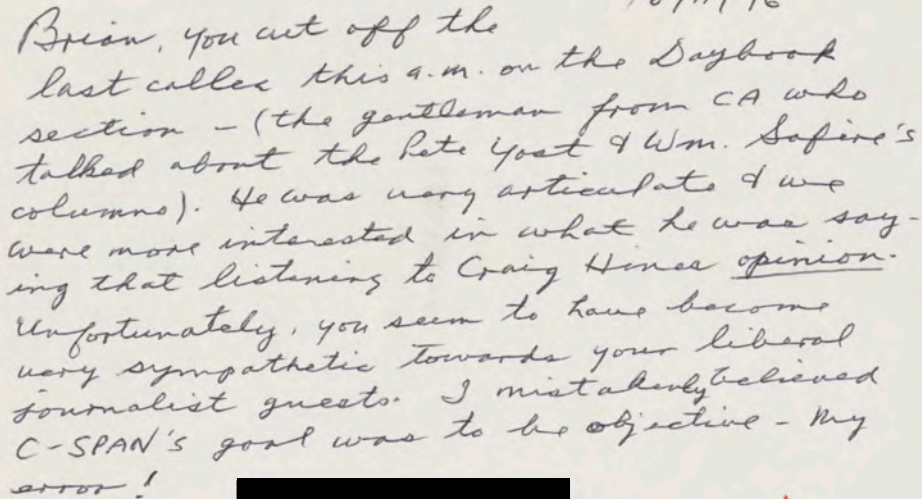 Brian, you cut off the
last caller this a.m. on the Daybook
section - (the gentleman from CA who
talked about the Pete Yost & Wm. Safire's
columns). He was very articulate & we
were more interested in what he was say-
ing that listening to Craig Hines opinion.
Unfortunately, you seem to have become
very sympathetic towards your liberal
journalist guests. I mistakenly believed
C-SPAN'S goal was to be objective - My
error!